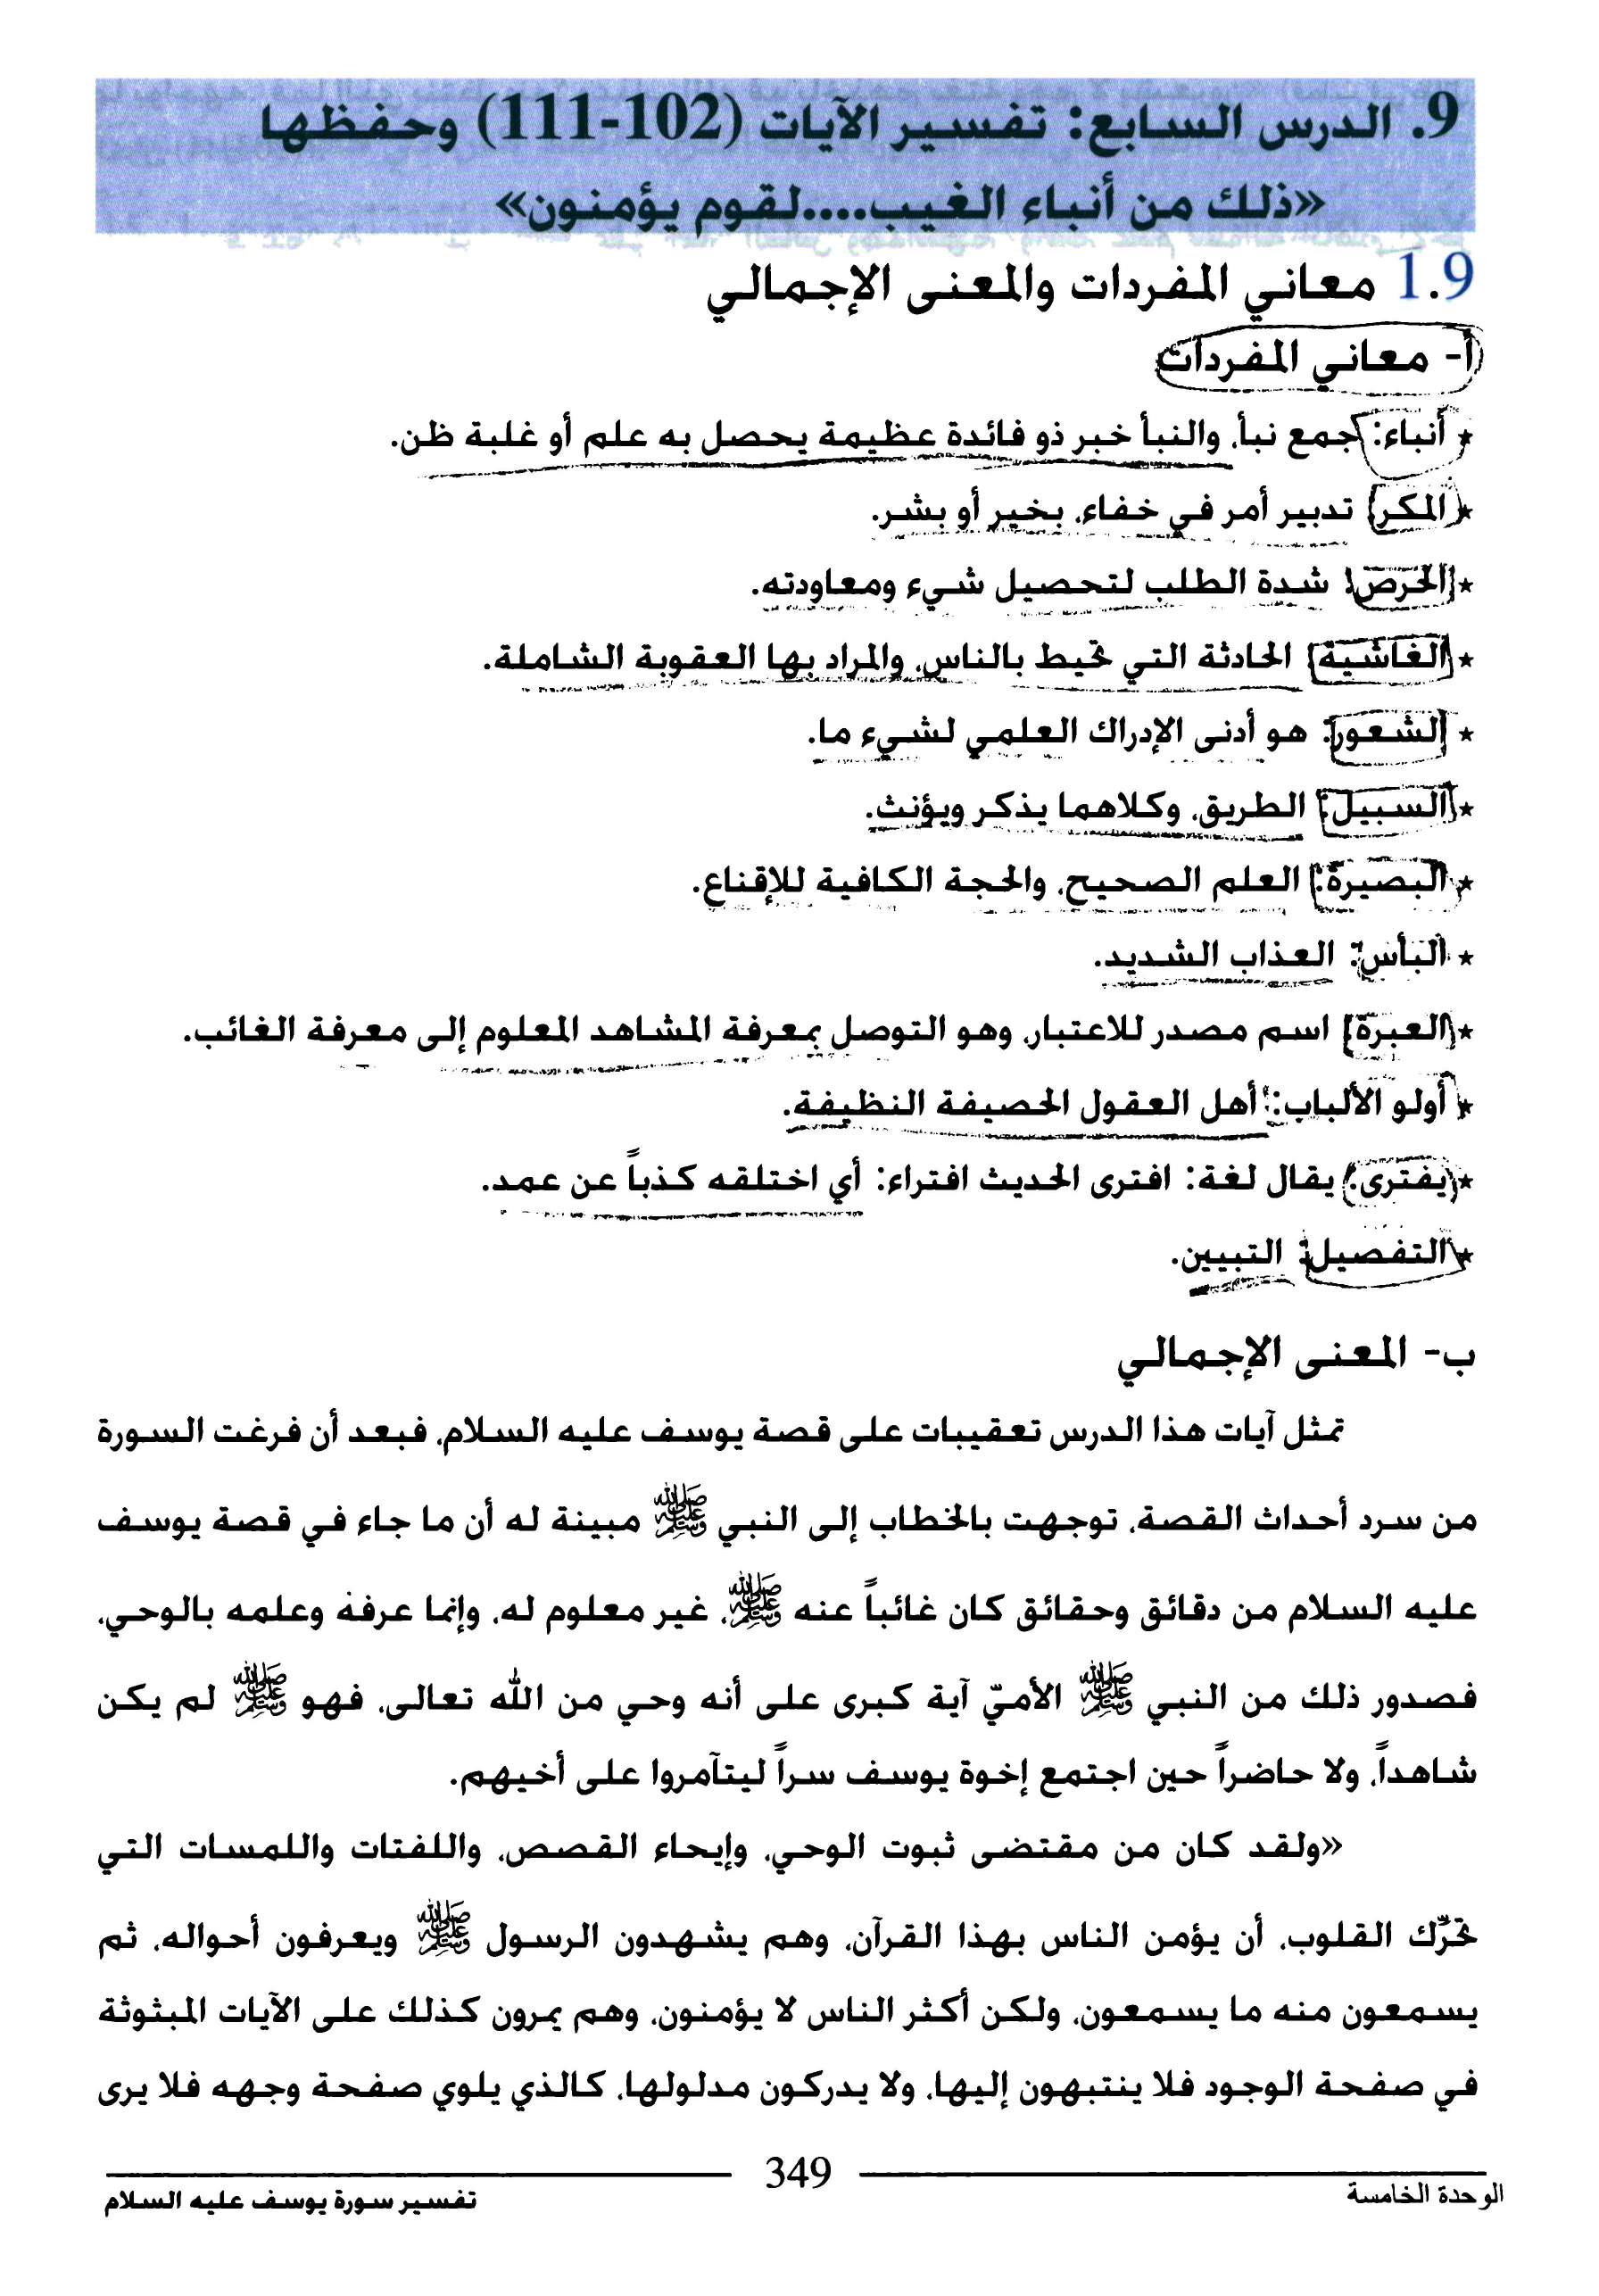 9. الدرس السابع: تفسير الآيات (102-111) وحفظها
«ذلك من أنباء الغيب....لقوم يؤمنون»
1.9 معاني المفردات والمعنى الإجمالي
أ- معاني المفردات
٭ أنباء: جمع نبأ، والنبأ خبر ذو فائدة عظيمة يحصل به علم أو غلبة ظن.
٭ المكر: تدبير أمر في خفاء، بخير أو بشر.
٭ الحرص: شدة الطلب لتحصيل شيء ومعاودته.
٭ الغاشية: الحادثة التي تحيط بالناس، والمراد بها العقوبة الشاملة.
٭ الشعور: هو أدنى الإدراك العلمي لشيء ما.
٭ السبيل: الطريق، وكلاهما يذكر ويؤنث.
٭ البصيرة: العلم الصحيح، والحجة الكافية للإقناع.
٭ البأس: العذاب الشديد.
٭ العبرة: اسم مصدر للاعتبار، وهو التوصل بمعرفة المشاهد المعلوم إلى معرفة الغائب.
٭ أولو الألباب: أهل العقول الحصيفة النظيفة.
٭ يفترى: يقال لغة: افترى الحديث افتراء: أي اختلقه كذباً عن عمد.
٭ التفصيل: التبيين.
ب- المعنى الإجمالي
تمثل آيات هذا الدرس تعقيبات على قصة يوسف عليه السلام، فبعد أن فرغت السورة
من سرد أحداث القصة، توجهت بالخطاب إلى النبي ﷺ مبينة له أن ما جاء في قصة يوسف
عليه السلام من دقائق وحقائق كان غائباً عنه ﷺ، غير معلوم له، وإنما عرفه وعلمه بالوحي،
فصدور ذلك من النبي ﷺ الأميّ آية كبرى على أنه وحي من الله تعالى، فهو ﷺ لم يكن
شاهداً، ولا حاضراً حين اجتمع إخوة يوسف سراً ليتآمروا على أخيهم.
«ولقد كان من مقتضى ثبوت الوحي، وإيحاء القصص، واللفتات واللمسات التي
تحرّك القلوب، أن يؤمن الناس بهذا القرآن، وهم يشهدون الرسول ﷺ ويعرفون أحواله، ثم
يسمعون منه ما يسمعون، ولكن أكثر الناس لا يؤمنون، وهم يمرون كذلك على الآيات المبثوثة
في صفحة الوجود فلا ينتبهون إليها، ولا يدركون مدلولها، كالذي يلوي صفحة وجهه فلا يرى
349
الوحدة الخامسة
تفسير سورة يوسف عليه السلام